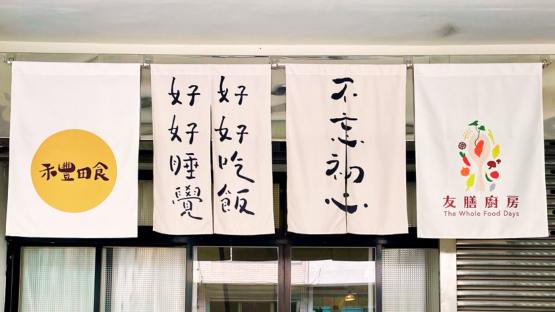 禾豐田食
好好吃飯
好好睡覺
不忘初心
友膳廚房
The Whole Food Days